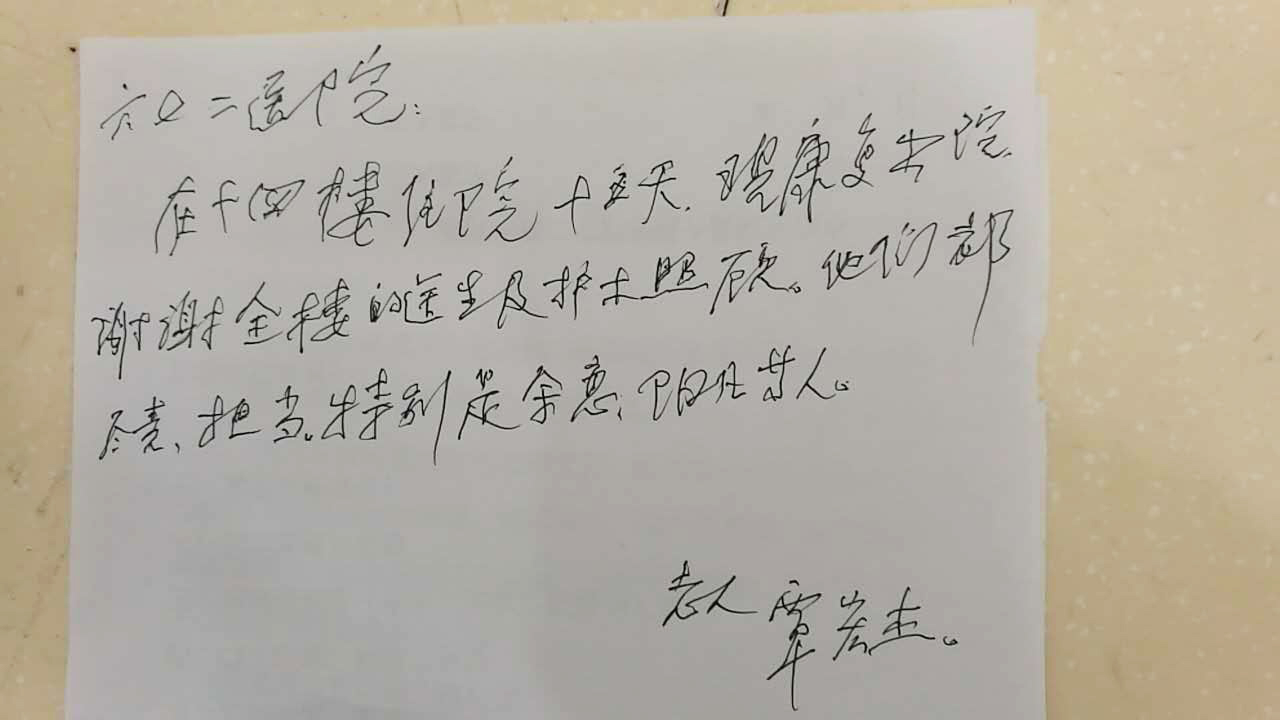 二医院：
在十四楼住院十五天、现康复出院、
谢谢全楼的医生及护士照顾。他们都
尽责、担当。特别是余惠、阳凡等人。
老人 覃宏杰。